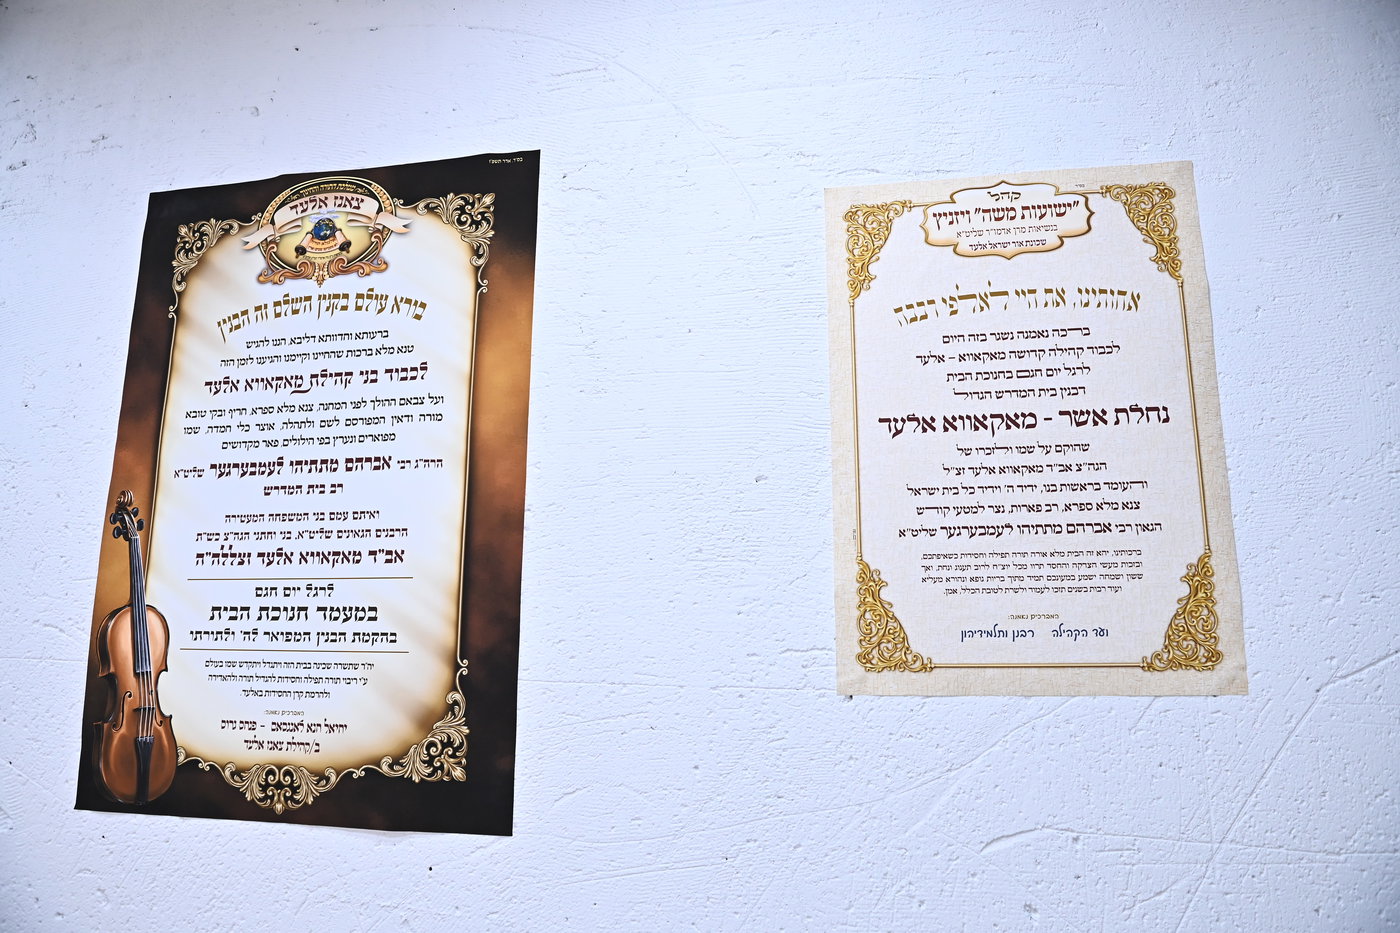 בס"ד, אדר תשפ"ו
צאנז אלעד
בורא עולם בקנין השלם זה הבנין
ברעותא וחדוותא דליבא, הננו להגיש
טנא מלא ברכות שהחיינו וקיימנו והגיענו לזמן הזה
לכבוד בני קהילת מאקאווא אלעד
ועל צבאם ההולך לפני המחנה, צנא מלא ספרא, חריף ובקי טובא
מורה ודאין המפורסם לשם ולתהלה, אוצר כלי חמדה, שמו
מפוארים ונערץ בפי הילולים, פאר מקדושים
הרה"ג רבי אברהם מתתיהו לעמבערגער שליט"א
רב בית המדרש
ואיתם עמם בני המשפחה המעטירה
הרבנים הגאונים שליט"א, בני וחתני הגה"צ כש"ת
אב"ד מאקאווא אלעד זצללה"ה
לרגל יום חגם
במעמד חנוכת הבית
בהקמת הבנין המפואר לה' ולתורתו
יה"ר שתשרה שכינה בבית הזה ויתגדל ויתקדש שמו בעולם
ע"י ריבוי תורה תפילה וחסידות להגדיל תורה ולהאדירה
ולהרמת קרן החסידות באלעד.
המברכים נאמנה:
יחיאל הנא לאנגסאם - פנחס גרוס
ב/קהילת צאנז אלעד
בס"ד
קהל
"ישועות משה" ויזניץ
בנשיאות מרן אדמו"ר שליט"א
שכונת אור ישראל אלעד
אחותינו, את היי לאלפי רבבה
ברכה נאמנה נשגר בזה היום
לכבוד קהילה קדושה מאקאווא – אלעד
לרגל יום חגם בחנוכת הבית
דבנין בית המדרש הגדול
נחלת אשר - מאקאווא אלעד
שהוקם על שמו ולזכרו של
הגה"צ אב"ד מאקאווא אלעד זצ"ל
והעומד בראשות בנו, ידיד ה' וידיד כל בית ישראל
צנא מלא ספרא, רב פארות, נצר למטעי קודש
הגאון רבי אברהם מתתיהו לעמבערגער שליט"א
ברכותינו, יהא זה הבית מלא אורה תורה תפילה וחסידות כשאיפתכם,
ובזכות מעשי הצדקה והחסד תרוו מכל יוצ"ח לרוב תענוג ונחת, ואך
ששון ושמחה ישמע במעונכם תמיד מתוך בריות גופא ונהורא מעליא
ועוד רבות בשנים תזכו לעמוד ולשרת לטובת הכלל, אמן.
המברכים נאמנה:
ועד הקהילה רבנן ותלמידיהון